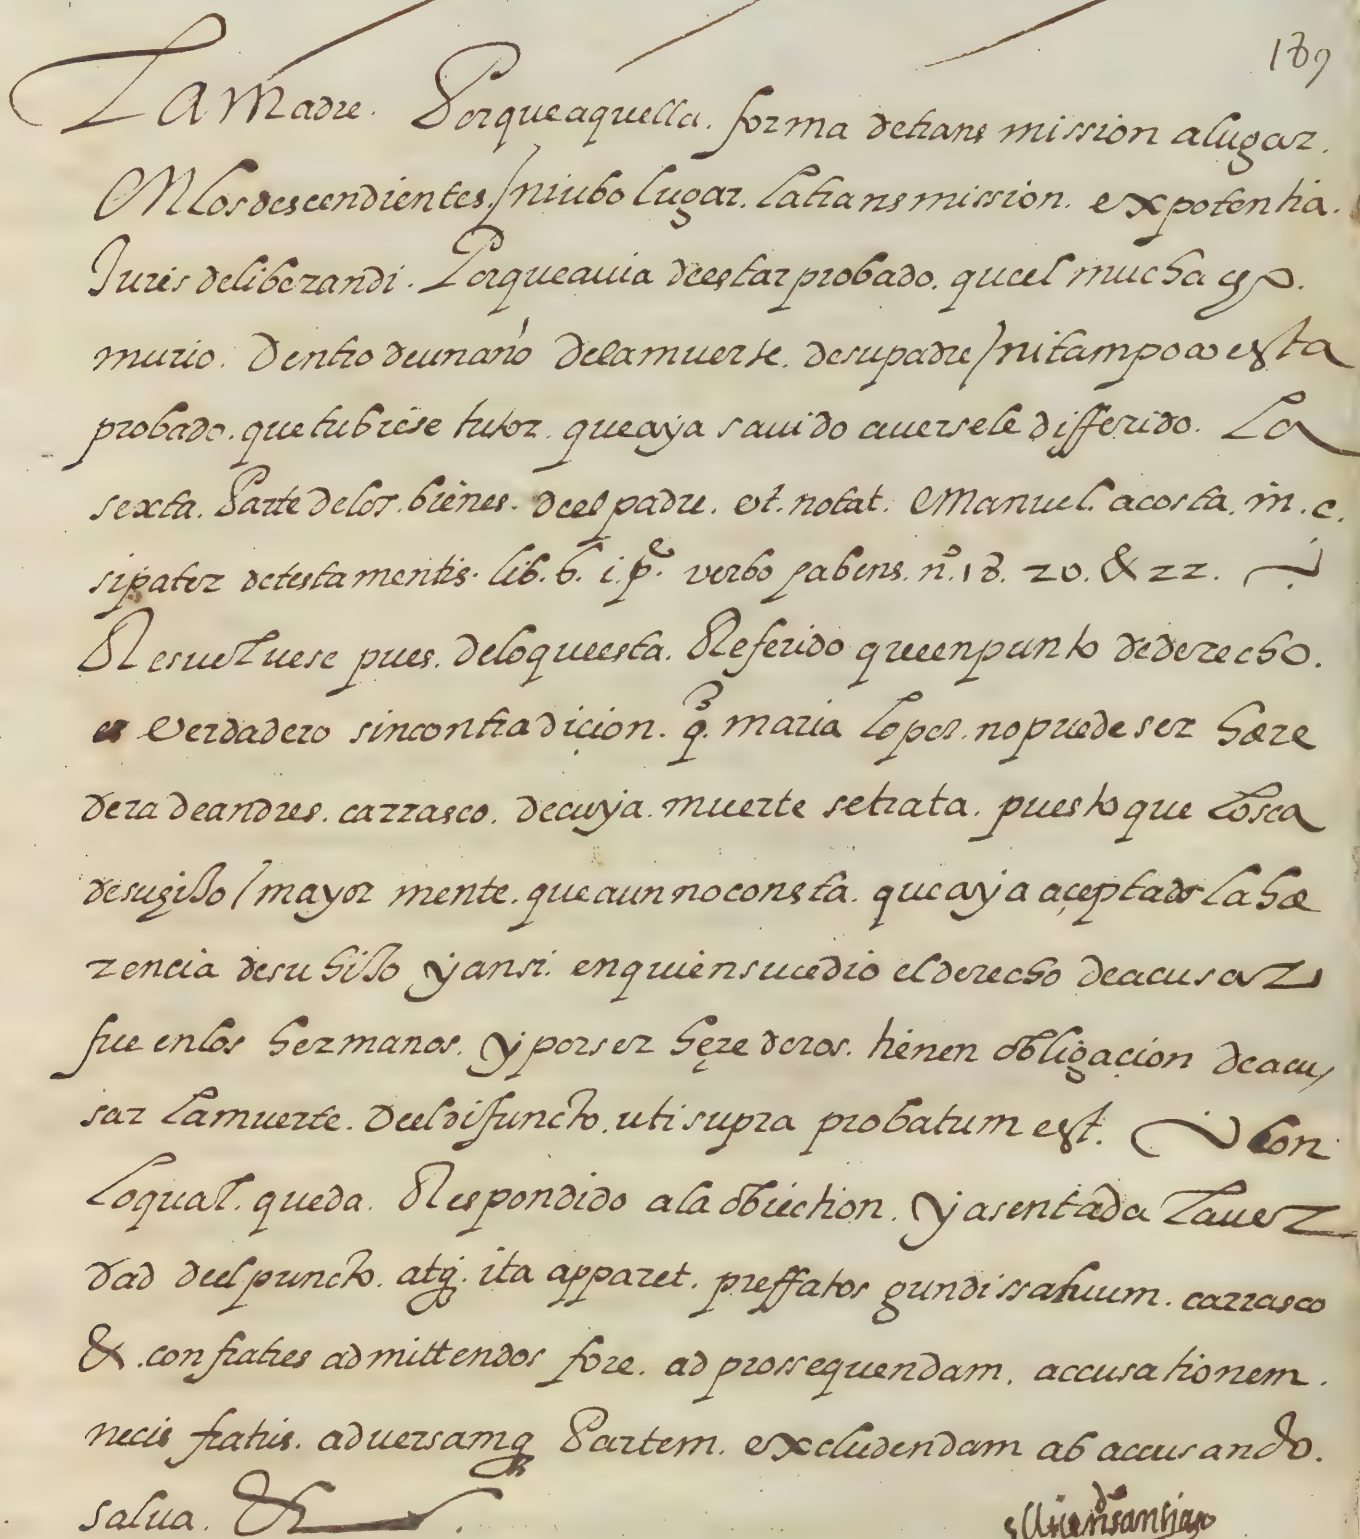 189
La Madre. Porque aquella. forma de trans mission a lugar.
En los descendientes. / ni ubo lugar. la transmission. ex potentia.
Juris deliberandi. Porque auia de estar probado. que el muchacho.
murio. Dentro de un año de la muerte. de su padre / ni tampoco esta
probado. que tubiese tutor. que aya sauido auersele differido. La
sexta. Parte de los. bienes. de el padre. vt. notat. Emanuel. acosta. in. c.
si pater de testamentis. lib. 6. i. p.ᵉ verbo habens. n.º 18. 20. & 22.
Resueluese pues. de lo que esta. Referido que en punto de derecho.
es verdadero sin contradicion. q. maria lopez. no puede ser hære
dera de andres. carrasco. de cuya. muerte se trata. puesto que lo sea
de su hijo / mayor mente. que aun no consta. que aya açeptado la hæ
rencia de su hijo y ansi. en quien sucedio el derecho de acusar
fue en los hermanos. y por ser hęrederos. tienen obligaçion de acu/
sar la muerte. De el difuncto. uti supra probatum est. Con
lo qual. queda. Respondido a la obiection. y asentada la uer
dad de el puncto. atq. ita apparet. preffatos gundissaluum. carrasco
& . confratres admittendos fore. ad prossequendam. accusationem.
necis fratris. aduersamq Partem. excludendam ab accusando.
salua. &